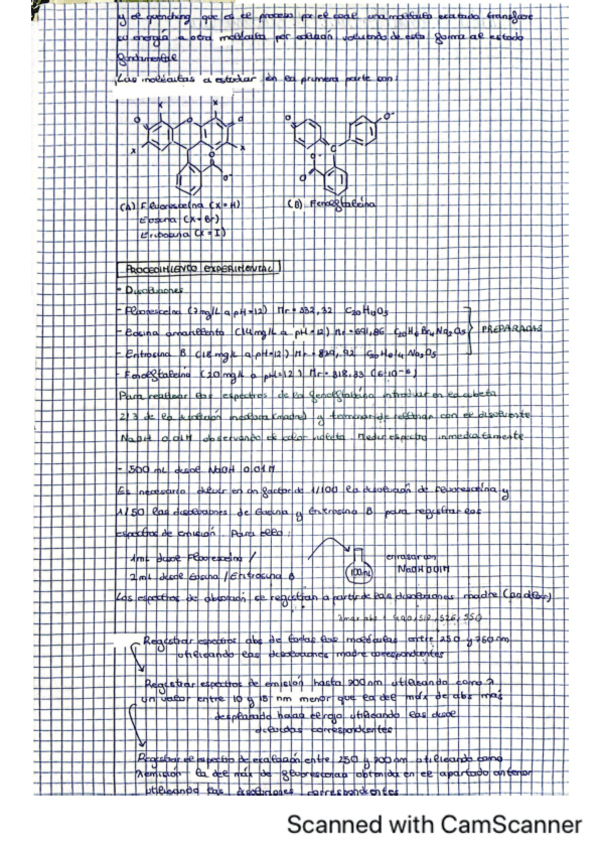 y el quenching, que es el proceso por el cual una molécula excitada transfiere
su energía a otra molécula por colisión volviendo de esta forma al estado
fundamental
Las moléculas a estudiar en la primera parte son:
(A) Fluoresceína (X=H)
Eosina (X=Br)
Eritrosina (X=I)
(B) Fenolftaleína
PROCEDIMIENTO EXPERIMENTAL
- Disoluciones
- Fluoresceína (7mg/L a pH=12) Mr = 332,32
- Eosina amarillenta (14mg/L a pH=12) Mr = 691,86
- Eritrosina B (18 mg/L a pH=12)
PREPARADAS
- Fenolftaleína (20 mg/L a pH=12) Mr = 318,33
Para realizar los espectros de la fenolftaleína introducir en la cubeta
2/3 de la disolución (madre) y terminar de rellenar con el disolvente
NaOH 0.01M observando el color violeta. Medir espectro inmediatamente
- 500 mL disol NaOH 0.01M
Es necesario diluir en un factor de 1/100 la disolución de fluoresceína y
1/50 las disoluciones de Eosina y Eritrosina B para registrar los
espectros de emisión. Para ello:
1mL disol Fluoresceína /
2mL disol Eosina / Eritrosina B
100mL
enrasar con
NaOH 0.01M
Los espectros de absorción se registran a partir de las disoluciones madre
λmax abs = 490, 518, 526, 550
Registrar espectros abs de todas las moléculas entre 250 y 760nm
utilizando las disoluciones madre correspondientes
Registrar espectros de emisión hasta 700nm utilizando como λ
un valor entre 10 y 15 nm menor que la del máx de abs más
desplazado hacia el rojo utilizando las disol
diluidas correspondientes
Registrar el espectro de excitación entre 250 y 700nm utilizando como
λemisión la del máx de fluorescencia obtenida en el apartado anterior
utilizando las disoluciones correspondientes
Scanned with CamScanner